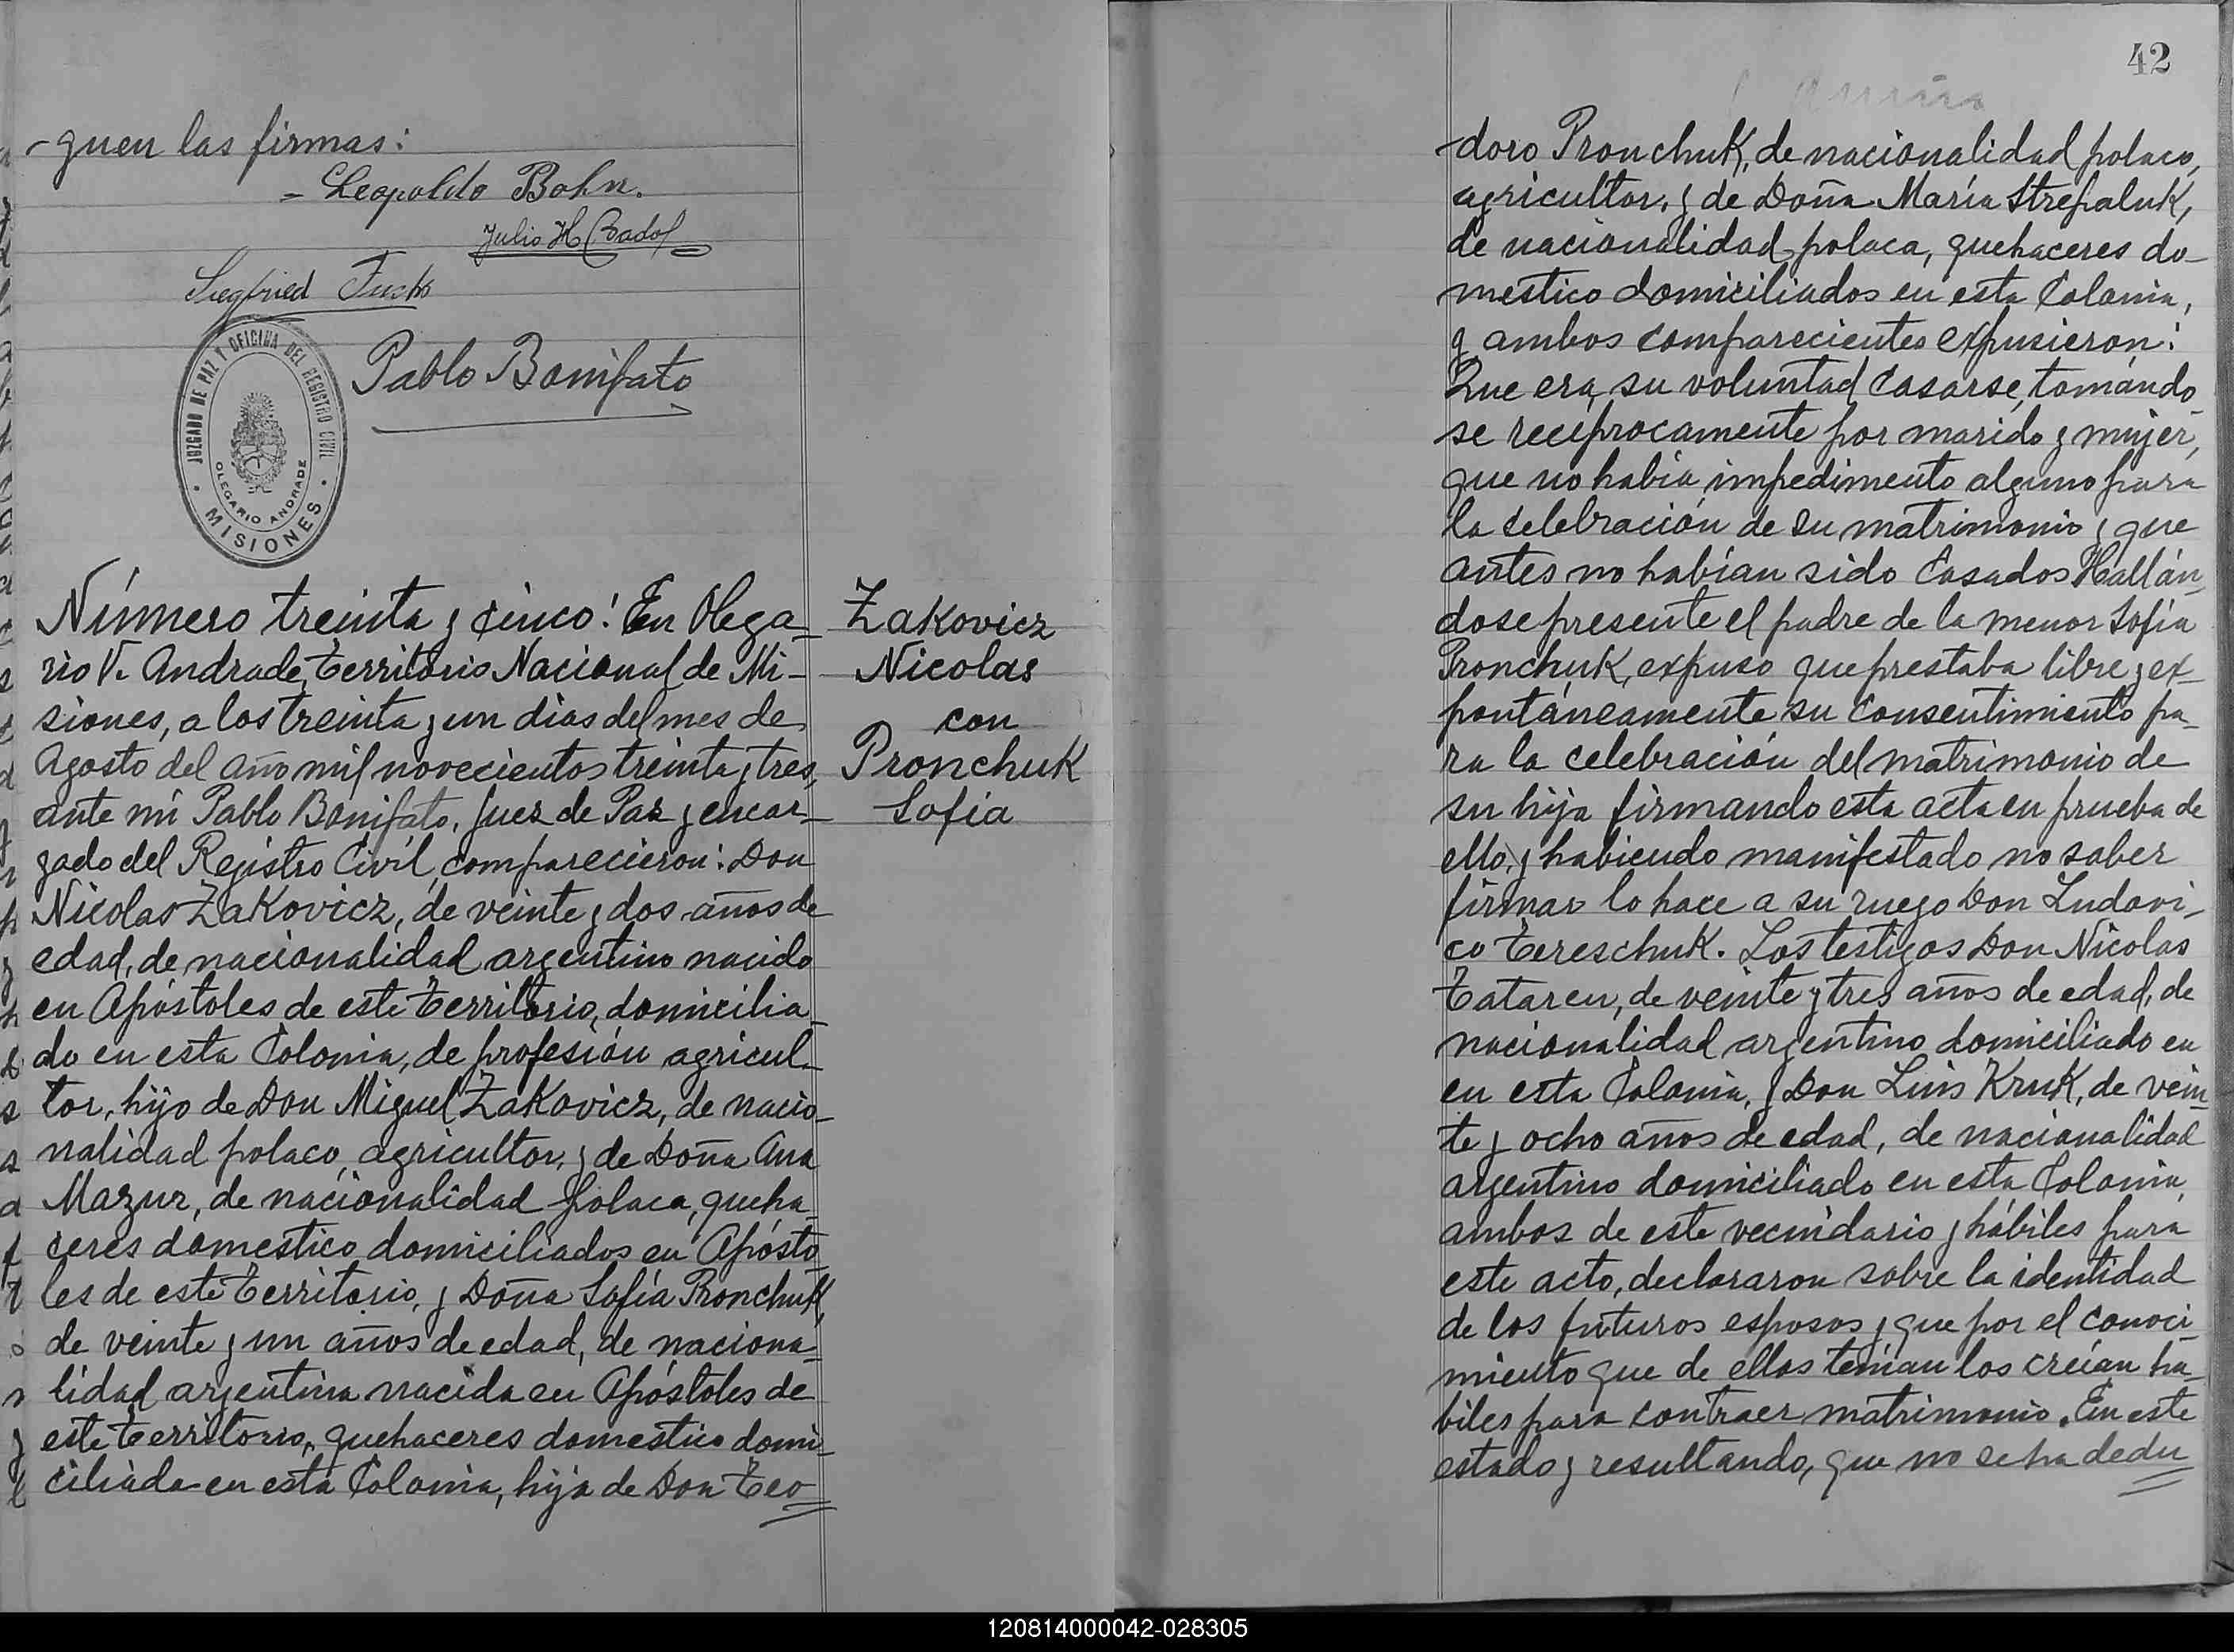 -guen las firmas:
- Leopoldo Bohn.
Julio H
Siegfried Fuchs
Pablo Bonifato
JUZGADO DE PAZ Y OFICINA DEL REGISTRO CIVIL
OLEGARIO ANDRADE
· MISIONES ·
Número treinta y cinco: En Olega-
rio V. Andrade, territorio Nacional de Mi-
siones, a los treinta y un dias del mes de
Agosto del año mil novecientos treinta y tres,
ante mi Pablo Bonifato, Juez de Paz y encar-
gado del Registro Civil, comparecieron: Don
Nicolas Zakovicz, de veinte y dos años de
edad, de nacionalidad argentino nacido
en Apóstoles de este territorio, domicilia-
do en esta Colonia, de profesión agricul-
tor, hijo de Don Miguel Zakovicz, de nacio-
nalidad polaco, agricultor, y de Doña Ana
Mazur, de nacionalidad polaca, queha-
ceres domestico domiciliados en Apósto-
les de este territorio, y Doña Sofía Pronchuk,
de veinte y un años de edad, de naciona-
lidad argentina nacida en Apóstoles de
este territorio, quehaceres domestico domi-
ciliada en esta Colonia, hija de Don Teo
Zakovicz
Nicolas
con
Pronchuk
Sofia
42
-doro Pronchuk, de nacionalidad polaco,
agricultor, y de Doña María Strepaluk,
de nacionalidad polaca, quehaceres do-
mestico domiciliados en esta Colonia,
y ambos comparecientes expusieron:
Que era su voluntad casarse, tomándo-
se reciprocamente por marido y mujer,
que no había impedimento alguno para
la celebración de su matrimonio y que
antes no habían sido casados Hallán-
dose presente el padre de la menor Sofía
Pronchuk, expuso que prestaba libre y ex-
pontáneamente su consentimiento pa-
ra la celebración del matrimonio de
su hija firmando esta acta en prueba de
ello, y habiendo manifestado no saber
firmar lo hace a su ruego Don Ludovi-
co Tereschuk. Los testigos Don Nicolas
Tataren, de veinte y tres años de edad, de
nacionalidad argentino domiciliado en
en esta Colonia, y Don Luis Kruk, de vein-
te y ocho años de edad, de nacionalidad
argentino domiciliado en esta Colonia,
ambos de este vecindario y hábiles para
este acto, declararon sobre la identidad
de los futuros esposos y que por el conoci-
miento que de ellos tenían los creían há-
biles para contraer matrimonio. En este
estado y resultando, que no se ha dedu
120814000042-028305